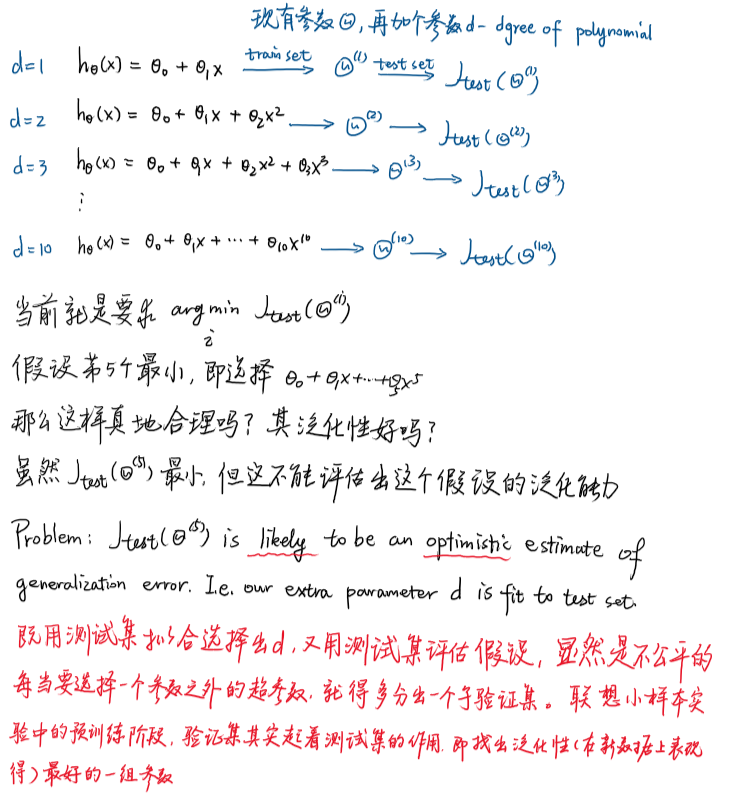 现有参数Θ,再加个参数d- dgree of polynomial
d=1 hθ(x) = θ₀ + θ₁x train set → Θ⁽¹⁾ test set → Jtest(Θ⁽¹⁾)
d=2 hθ(x) = θ₀ + θ₁x + θ₂x² → Θ⁽²⁾ → Jtest(Θ⁽²⁾)
d=3 hθ(x) = θ₀ + θ₁x + θ₂x² + θ₃x³ → Θ⁽³⁾ → Jtest(Θ⁽³⁾)
⋮
d=10 hθ(x) = θ₀ + θ₁x + ⋯ + θ₁₀x¹⁰ → Θ⁽¹⁰⁾ → Jtest(Θ⁽¹⁰⁾)
当前就是要求 argmin Jtest(Θ⁽ⁱ⁾)
i
假设第5个最小,即选择 θ₀ + θ₁x + ⋯ + θ₅x⁵
那么这样真地合理吗?其泛化性好吗?
虽然 Jtest(Θ⁽⁵⁾) 最小,但这不能评估出这个假设的泛化能力
Problem: Jtest(Θ⁽⁵⁾) is likely to be an optimistic estimate of
generalization error. I.e. our extra parameter d is fit to test set.
既用测试集拟合选择出d,又用测试集评估假设,显然是不公平的
每当要选择一个参数之外的超参数,就得多分出一个子验证集。联想小样本实
验中的预训练阶段,验证集其实起着测试集的作用.即找出泛化性(在新数据上表现
得)最好的一组参数